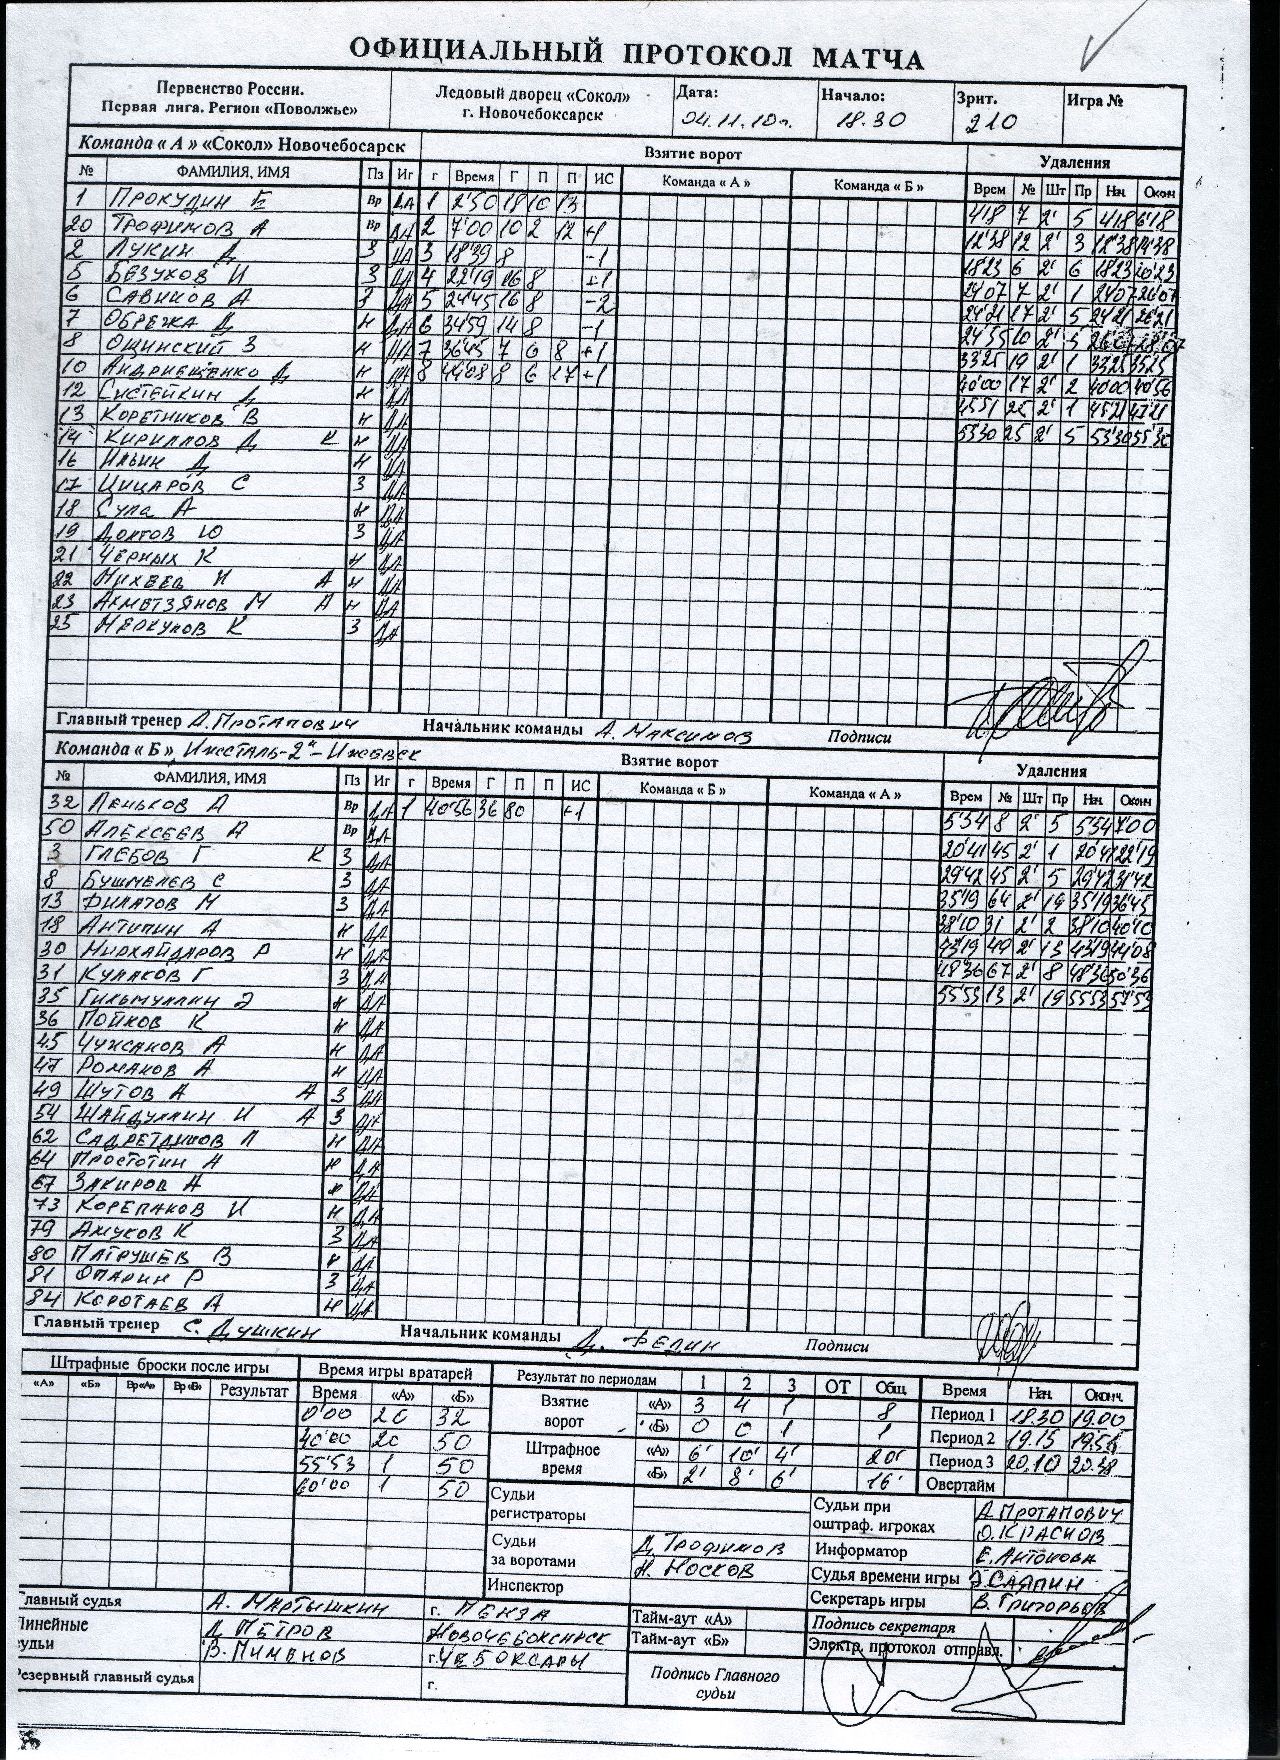 ОФИЦИАЛЬНЫЙ ПРОТОКОЛ МАТЧА
Первенство России. Первая лига. Регион «Поволжье» Ледовый дворец «Сокол» г. Новочебоксарск Дата: 04.11.10г. Начало: 18.30 Зрит. 210 Игра №
Команда « А » «Сокол» Новочебосарск Взятие ворот Удаления
№ ФАМИЛИЯ, ИМЯ Пз Иг г Время Г П П ИС Команда « А » Команда « Б » Врем № Шт Пр Нач Оконч
1 Прокудин Е Вр ДА 1 2'50 18 10 13 4'18 7 2' 5 4'18 6'18
20 Трофимов А Вр ДА 2 7'00 10 2 12 +1 12'38 12 2' 3 12'38 14'38
2 Лукин Д З ДА 3 18'39 8 -1 18'23 6 2' 6 18'23 20'23
5 Безухов И З ДА 4 22'19 16 8 +1 24'07 7 2' 1 24'07 26'07
6 Савинов А З ДА 5 24'45 16 8 -2 24'21 17 2' 5 24'21 26'21
7 Обрежа Д Н ДА 6 34'59 14 8 -1 24'55 10 2' 5
8 Ощинский З Н ДА 7 36'45 7 6 8 +1 33'25 19 2' 1 33'25 35'25
10 Андриещенко Д Н ДА 8 44'08 8 6 17 +1 40'00 17 2' 2 40'00 40'56
12 Систейкин Д Н ДА 45'51 25 2' 1 45'21 47'21
13 Коретников В Н ДА 53'30 25 2' 5 53'30 55'30
14 Кириллов Д К Н ДА
16 Ильин Д Н ДА
17 Цицаров С З ДА
18 Супа А Н ДА
19 Долгов Ю З ДА
21 Черных К Н ДА
22 Михеев И А Н ДА
23 Ахметзянов М А Н ДА
25 Меркулов К З ДА
Главный тренер А. Протапович Начальник команды А. Максимов Подписи
Команда « Б » Ижсталь-2"- Ижевск Взятие ворот Удаления
№ ФАМИЛИЯ, ИМЯ Пз Иг г Время Г П П ИС Команда « Б » Команда « А » Врем № Шт Пр Нач Оконч
32 Леньков А Вр ДА 1 40'56 36 80 +1 5'34 8 2' 5 5'34 7'00
50 Алексеев А Вр ДА 20'41 45 2' 1 20'41 22'19
3 Глебов Г К З ДА 29'42 45 2' 5 29'42 31'42
8 Бушмелев С З ДА 35'19 64 2' 19 35'19 36'45
13 Филатов М З ДА 38'10 31 2' 2 38'10 40'10
18 Антипин А Н ДА 43'19 49 2' 13 43'19 44'08
30 Мирхайдаров Р Н ДА 48'36 67 2' 8 48'36 50'36
31 Кулаков Г З ДА 55'53 13 2' 19 55'53 57'53
35 Гильмуллин Э Н ДА
36 Пойлов К Н ДА
45 Чужсанов А Н ДА
47 Романов А Н ДА
49 Шутов А А З ДА
54 Шайдуллин И А З ДА
62 Садретдинов Л Н ДА
64 Простотин А Н ДА
67 Закиров А Н ДА
73 Корепанов И Н ДА
79 Ажуков К З ДА
80 Патрушев В Н ДА
81 Опарин Р З ДА
84 Коротаев А Н ДА
Главный тренер С. Душкин Начальник команды Д. Фелин Подписи
Штрафные броски после игры Время игры вратарей Результат по периодам 1 2 3 ОТ Общ. Время Нач. Оконч.
«А» «Б» Вр«А» Вр«Б» Результат Время «А» «Б»
0'00 20 32 Взятие ворот «А» 3 4 1 8 Период 1 18.30 19.00
40'00 20 50 «Б» 0 0 1 1 Период 2 19.15
55'53 1 50 Штрафное время «А» 6' 10' 4' 20' Период 3 20.10 20.38
60'00 1 50 «Б» 2' 8' 6' 16' Овертайм
Судьи регистраторы Судьи при оштраф. игроках А. Протапович
О. Краснов
Судьи за воротами Д. Трофимов Информатор Е. Антонова
Н. Носков Судья времени игры Э. Саяпин
Инспектор Секретарь игры В. Григорьев
Главный судья А. Мартышкин г. Пенза Тайм-аут «А» Подпись секретаря
Линейные судьи Д. Петров Новочебоксарск Тайм-аут «Б» Электр. протокол отправл.
В. Пименов г. Чебоксары
Резервный главный судья г. Подпись Главного судьи